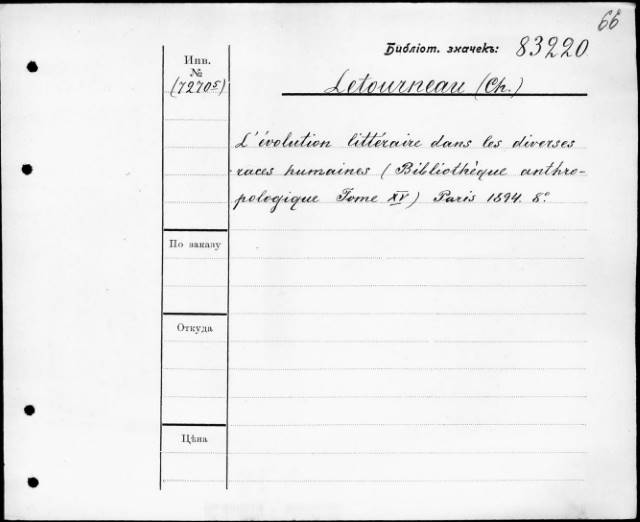 66
Библіот. значекъ: 83220
Инв.
№
(72705)
Letourneau (Ch.)
L'évolution littéraire dans les diverses
races humaines (Bibliothèque anthro-
pologique Tome XV) Paris 1894. 8º.
По заказу
Откуда
Цѣна